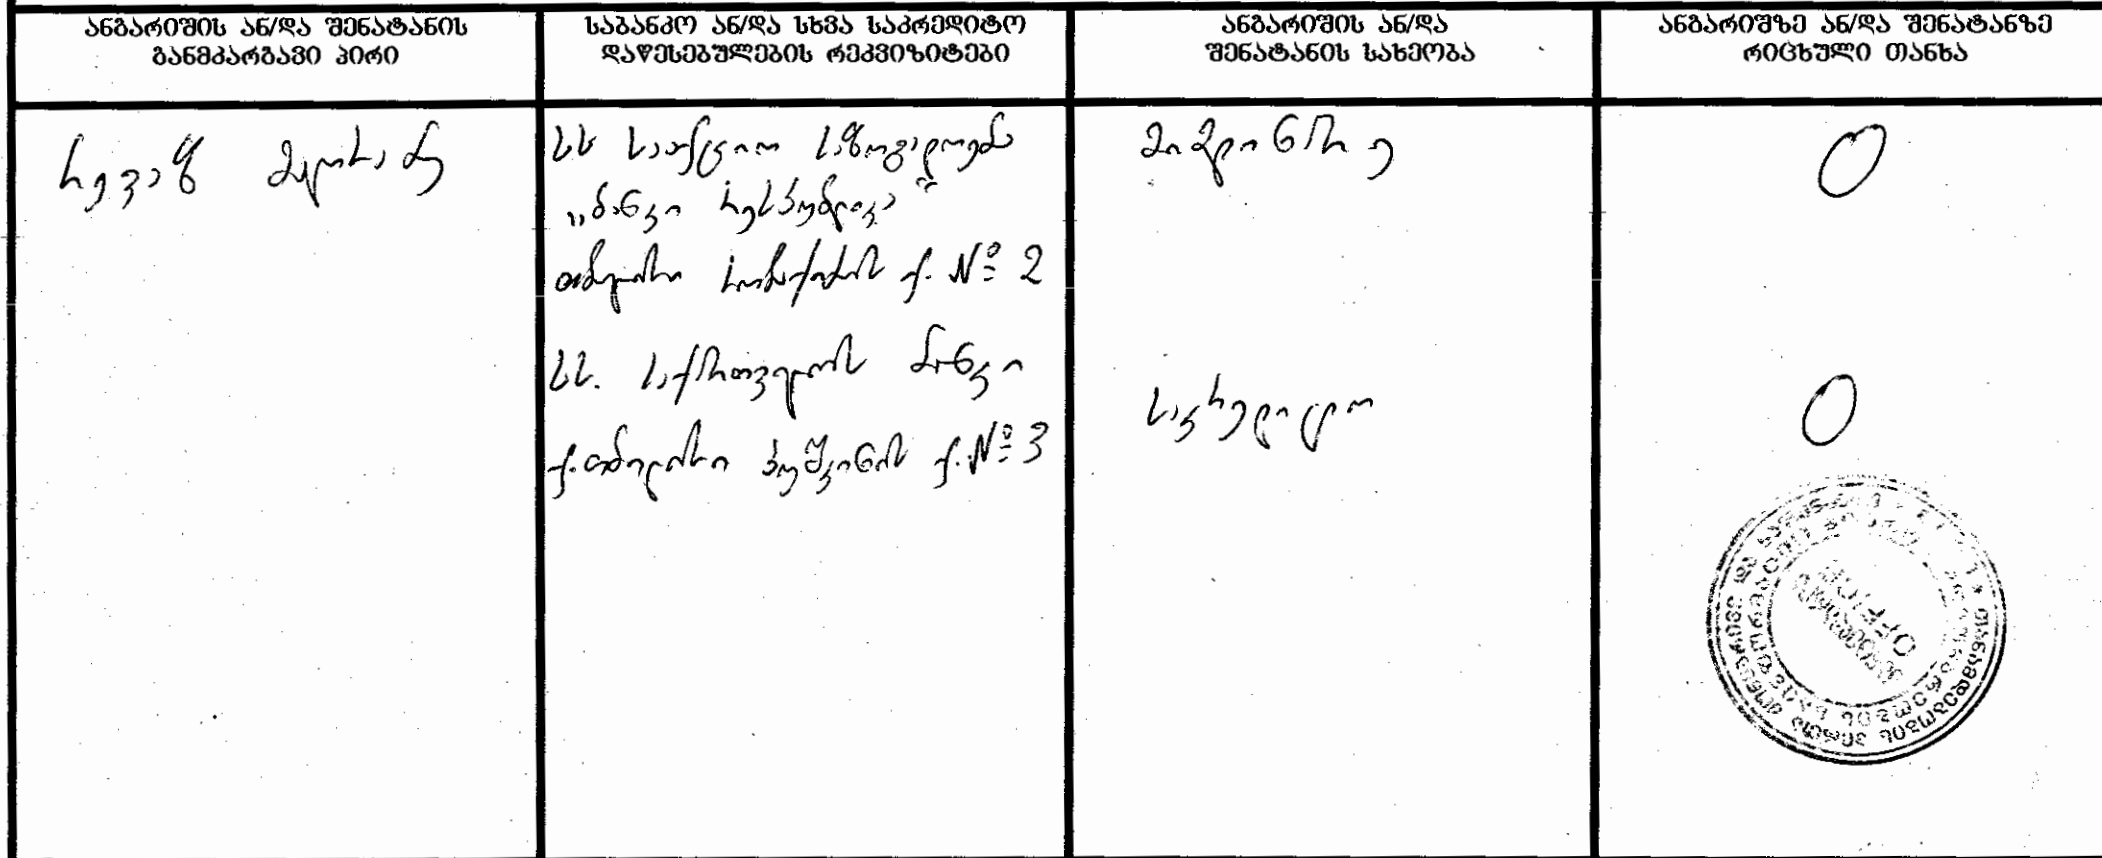 ანგარიშის ან/და შენატანის
განმკარგავი პირი
საბანკო ან/და სხვა საკრედიტო
დაწესებულების რეკვიზიტები
ანგარიშის ან/და
შენატანის სახეობა
ანგარიშზე ან/და შენატანზე
რიცხული თანხა
რევაზ
სს სააქციო საზოგადოება
„ბანკი რესპუბლიკა“
თბილისი ქ. № 2
მიმდინარე
0
სს. საქართველოს ბანკი
ქ. თბილისი პუშკინის ქ. № 3
საკრედიტო
0
OFFICE